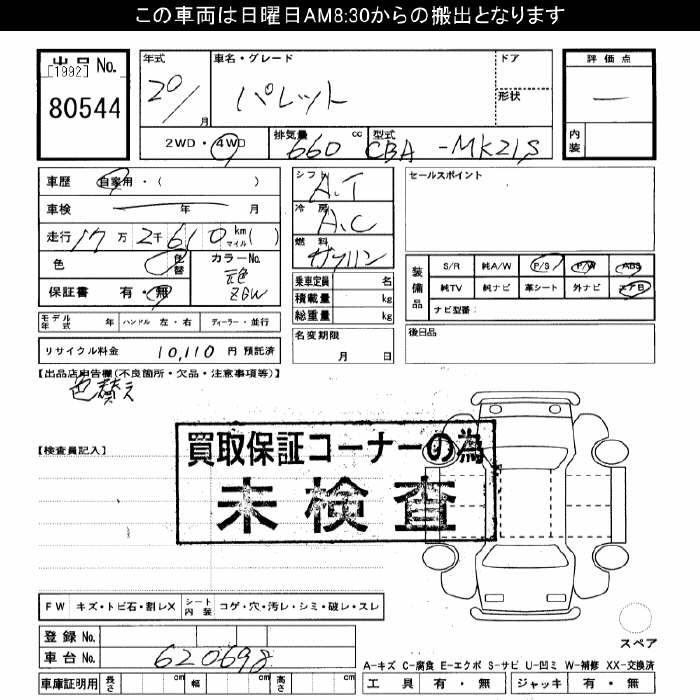 この車両は日曜日AM8:30からの搬出となります
出品 No.
[1992]
80544
年式
20/
月
車名・グレード
パレット
ドア
形状
評価点
―
内装
2WD・4WD
排気量
660 cc
型式
CBA -MK21S
車歴 自家用・( )
車検 年 月
走行 17万 2千 610 km マイル( )
色 色替
カラーNo.
元色
ZGW
保証書 有・無
シフト
A.T
冷房
A.C
燃料
ガソリン
乗車定員 名
積載量 kg
総重量 kg
セールスポイント
装備品
S/R 純A/W P/S P/W ABS
純TV 純ナビ 革シート 外ナビ エアB
ナビ型番:
モデル年式 年 ハンドル 左・右 ディーラー・並行
名変期限
月 日
後日品
リサイクル料金 10,110 円 預託済
【出品店申告欄(不良箇所・欠品・注意事項等)】
色替え
【検査員記入】
買取保証コーナーの為
未検査
FW キズ・トビ石・割レX シート内装 コゲ・穴・汚レ・シミ・破レ・スレ
登録 No.
車台 No. 620698
車庫証明用 長さ cm 幅 cm 高さ cm
スペア
A-キズ C-腐食 E-エクボ S-サビ U-凹ミ W-補修 XX-交換済
工具 有・無 ジャッキ 有・無